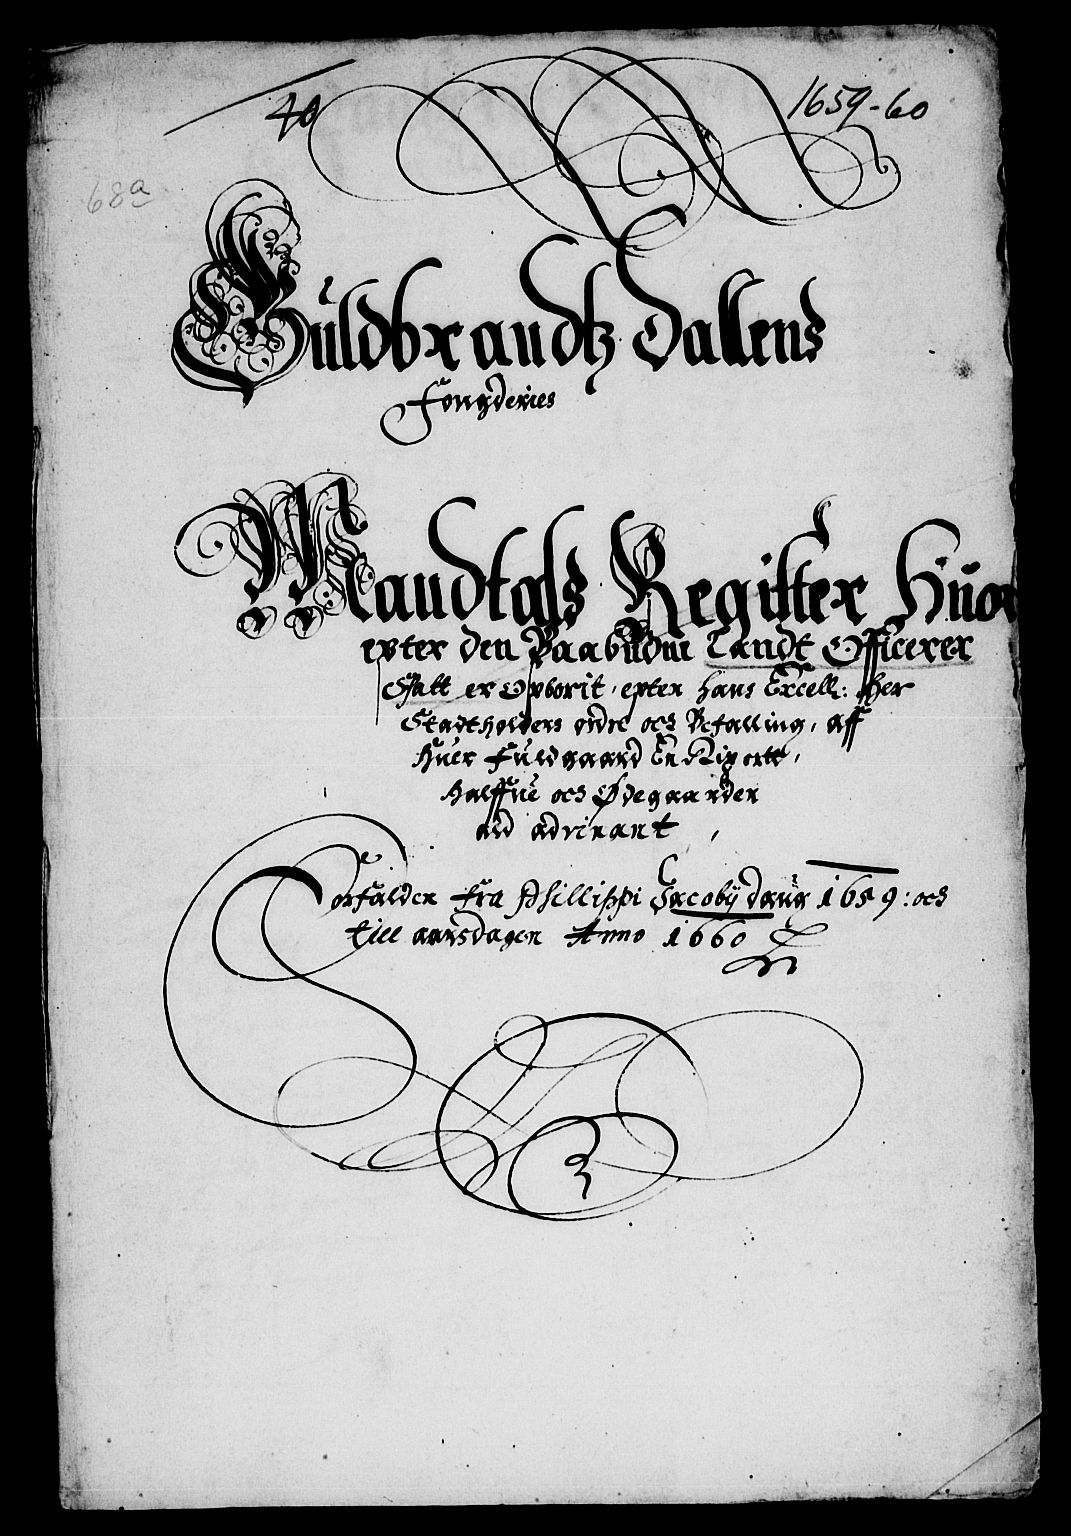 40
1659-60
68a
Guldbrandtz Dallens
Fougderies
Mandtals Register Huor
epter den Paabudne Landt Officerer
Skatt er Opborit, epter hans Excell: Her
Stadtholders ordre och Befalling, aff
Huer Fuldgaard En Rix ortt,
Halffue och Ødegaarder
ad advinant,
Forfalden fra Phillippi Jacobij daug 1659: och
till aarsdagen Anno 1660